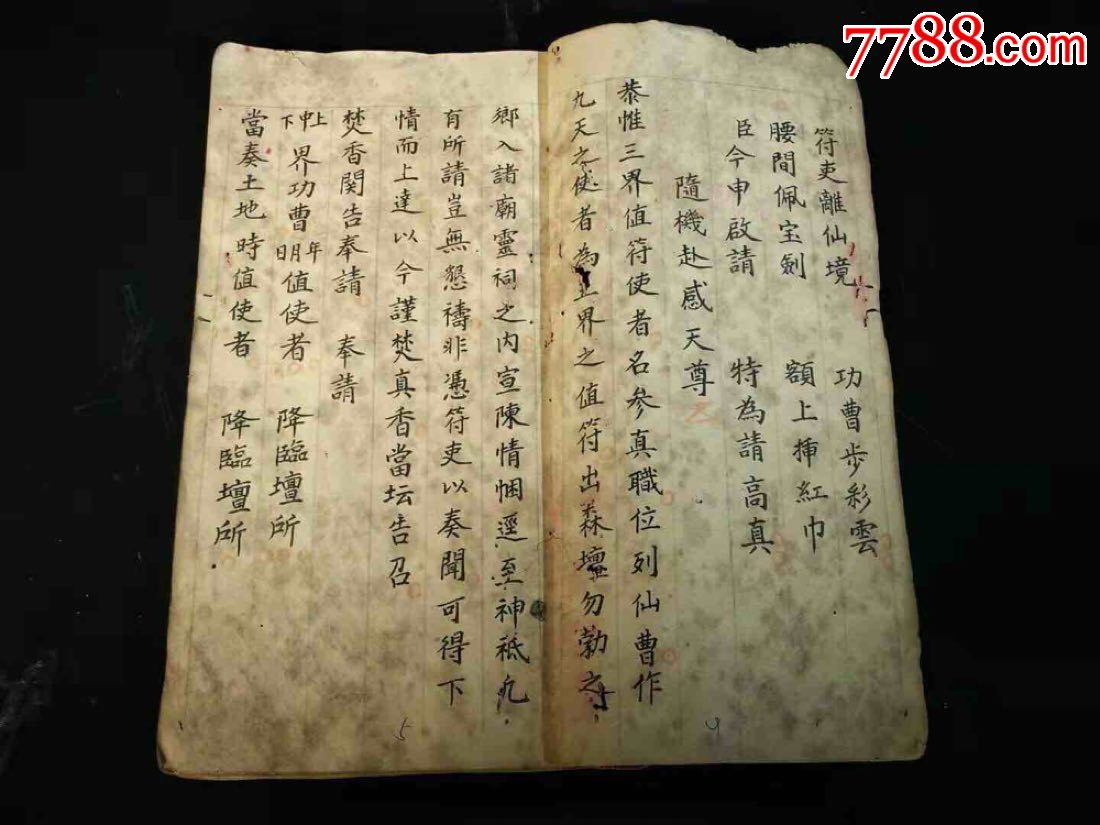 7788.com
符吏離仙境 功曹步彩雲
腰間佩宝劍 額上揷紅巾
臣今申啟請 特為請高真
隨機赴感天尊
恭惟三界值符使者名參真職位列仙曹作
九天之使者為三界之值符出森壇勿勌之
鄉入諸廟靈祠之內宣陳情悃逕至神祗凢
有所請豈無懇禱非憑符吏以奏聞可得下
情而上達以今謹焚真香當坛告召
焚香関告奉請 奉請
上中下界功曹年明日值使者 降臨壇所
當奏土地時值使者 降臨壇所
4
5